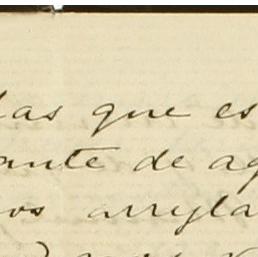 las que es
ante de ag
os arregla